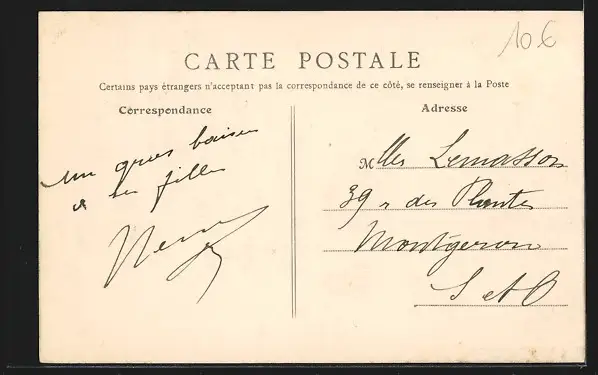 10 €
CARTE POSTALE
Certains pays étrangers n'acceptant pas la correspondance de ce côté, se renseigner à la Poste
Correspondance
un gros baiser
à ses filles
Adresse
Mlles Lemasson
39 r des Plantes
Montgeron
S et O